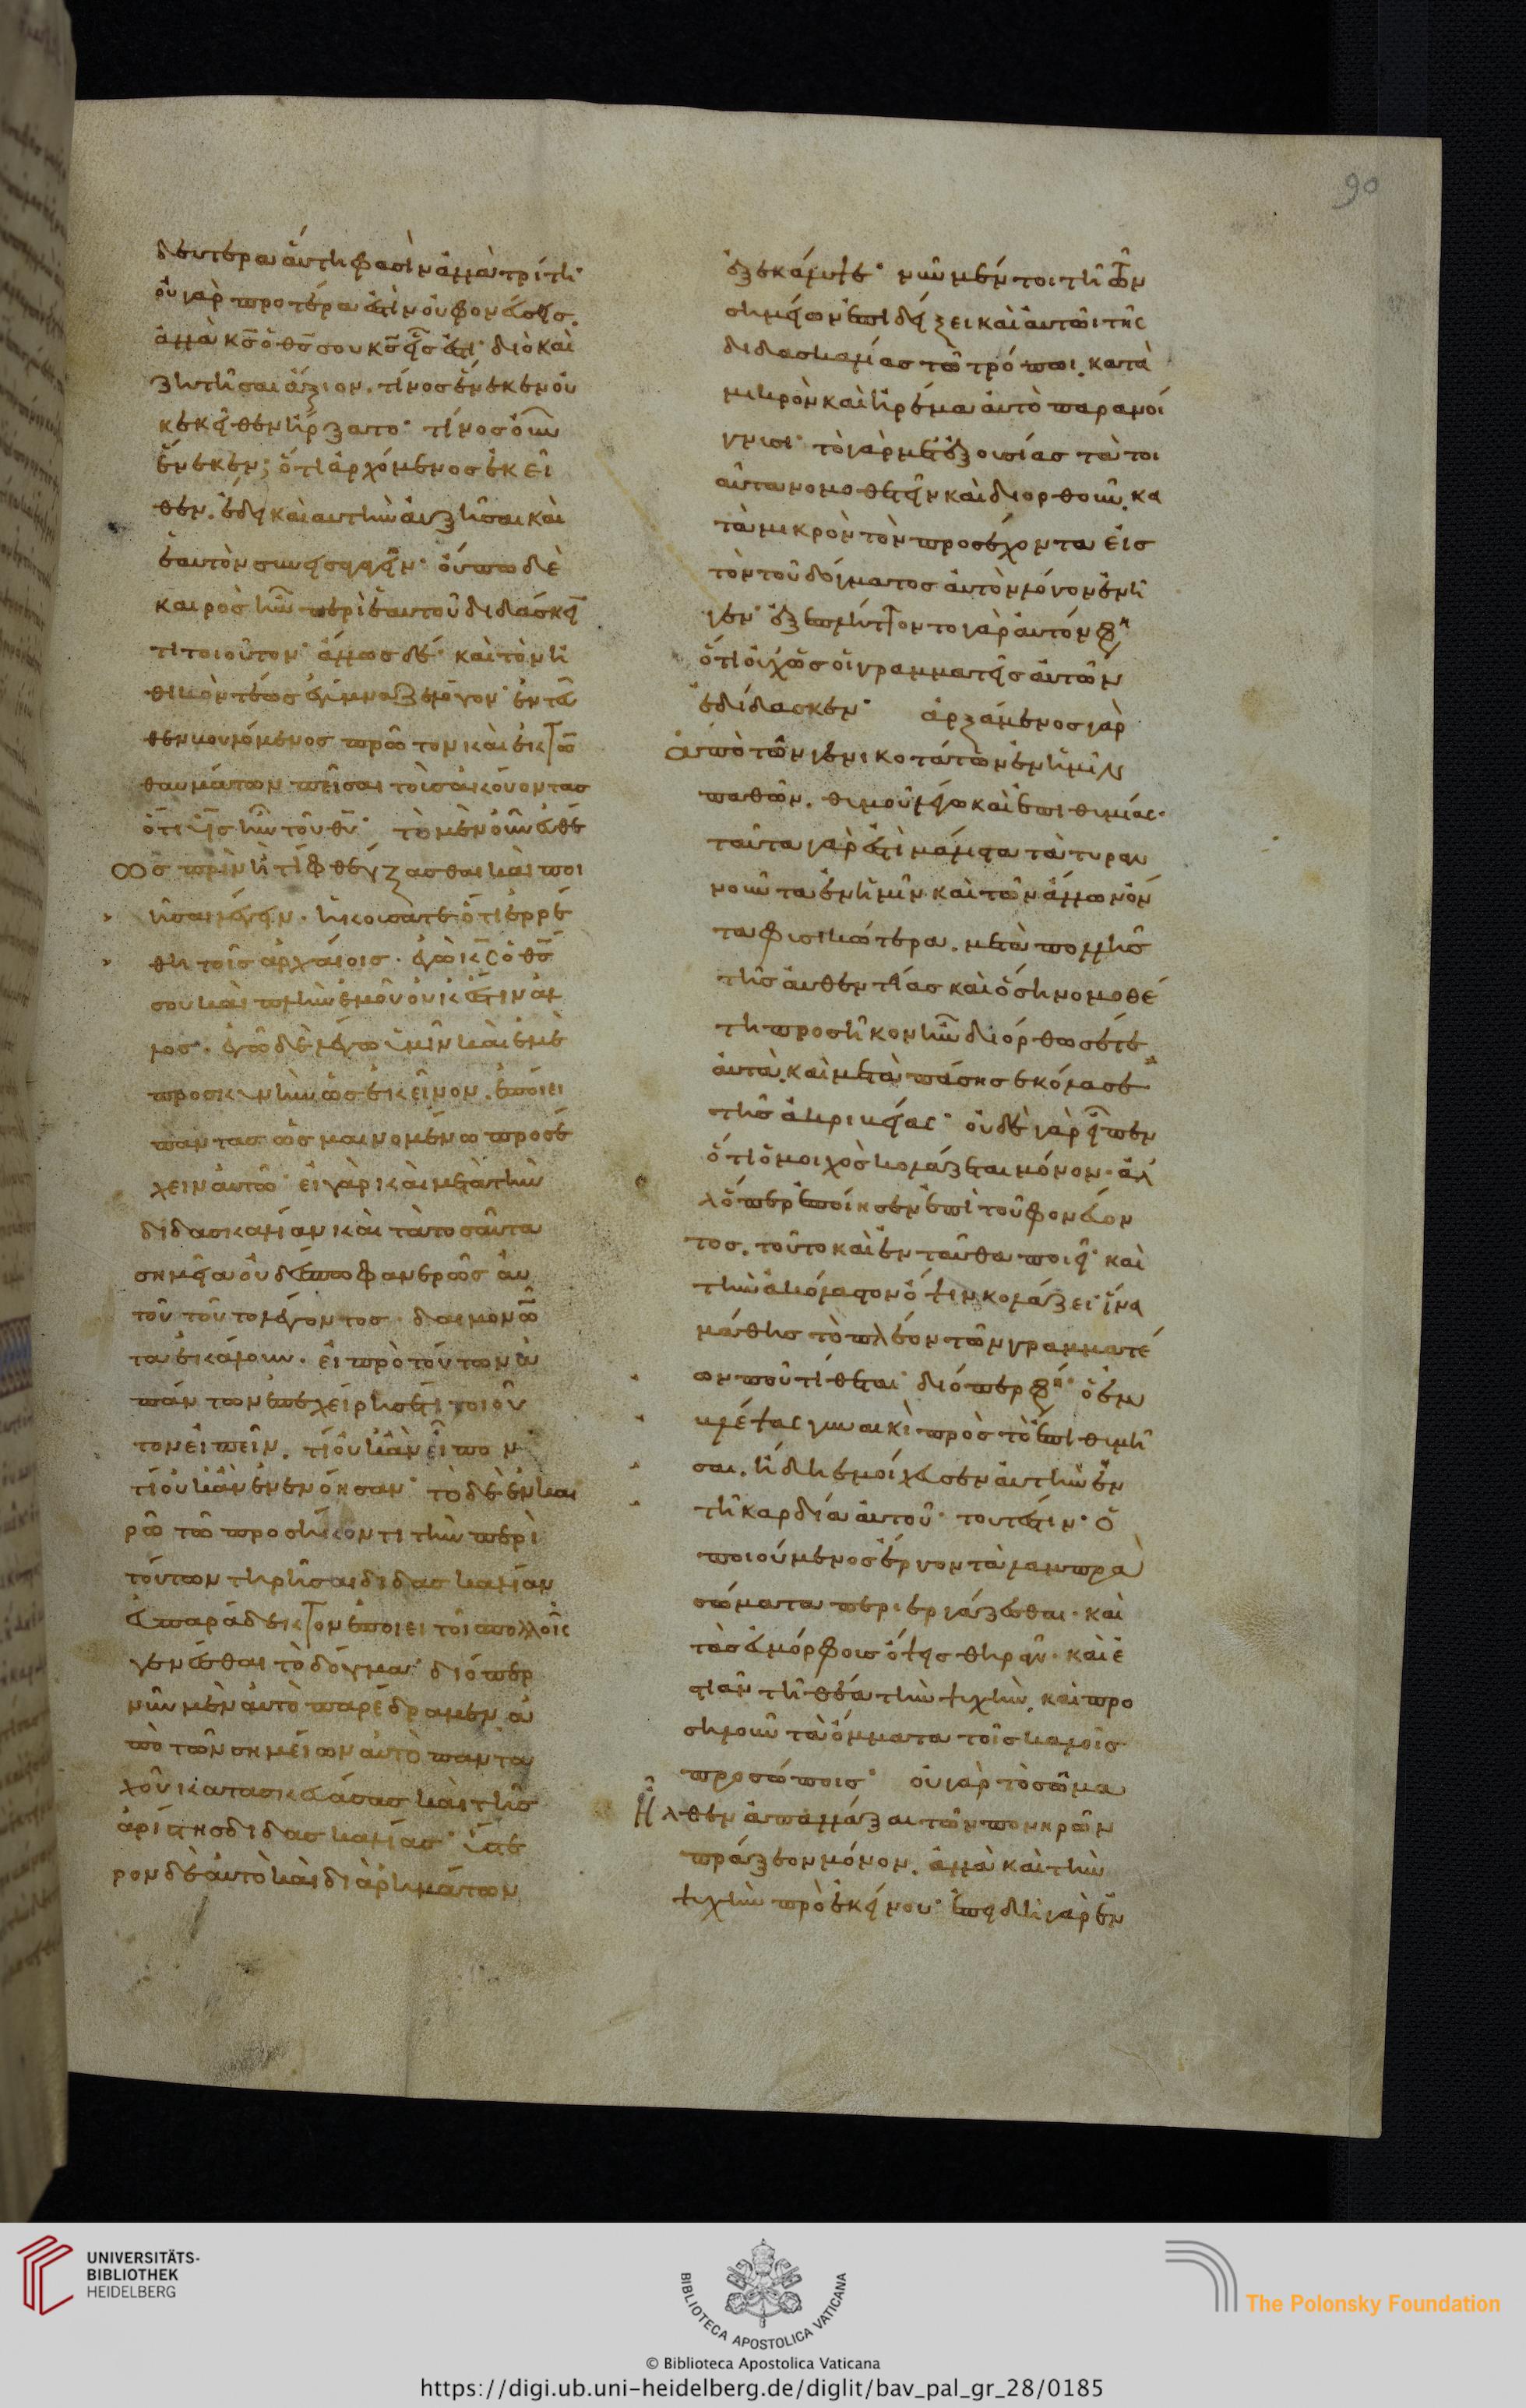 δευτέρα αὕτη φασὶν ἀλλὰ τρίτη·
οὐ γὰρ προτέρα ἐστὶν οὐ φονεύσεις.
ἀλλὰ κ̅ς̅ ὁ θ̅ς̅ σου κ̅ς̅ εἷς ἐστι· διὸ καὶ
ζητῆσαι ἄξιον. τίνος ἕνεκεν οὐ
κ ἐκεῖθεν ἤρξατο· τίνος οὖν
ἕνεκεν; ὅτι ἀρχόμενος ἐκεῖ
θεν. ἔδει καὶ αὐτὴν αὐξῆσαι καὶ
ἑαυτὸν συνεισαγαγεῖν· οὔπω δὲ
καιρὸς ἦν περὶ ἑαυτοῦ διδάσκει̅
τι τοιοῦτον· ἄλλως δέ· καὶ τὸν ἠ
θικὸν τέως ἐγύμναζε λόγον· ἐντεῦ
θεν βουλόμενος πρῶτον καὶ ἐκ τῶ̅
θαυμάτων πεῖσαι τοὺς ἀκούοντας
ὅτι υ̅ς̅ ἦν τοῦ θ̅υ̅· τὸ μὲν οὖν εὐθέ
ως πρὶν ἤ τι φθέγξασθαι καὶ ποι
ῆσαι λέγειν. ἠκούσατε ὅτι ἐρρέ
θη τοῖς ἀρχαίοις. ἐγὼ κ̅ς̅ ὁ θ̅ς̅
σου καὶ πλὴν ἐμοῦ οὐκ ἔστιν ἄλ
λος. ἐγὼ δὲ λέγω ὑμῖν καὶ ἐμὲ
προσκυνεῖν ὡς ἐκεῖνον. ἐποίει
πάντας ὡς μαινομένω προσέ
χειν αὐτῶ· εἰ γὰρ καὶ μετὰ τὴν
διδασκαλίαν καὶ τὰ τοσαῦτα
σημεῖα οὐδέπω φανερῶς αὐ
τοῦ τοῦτο λέγοντος. δαιμονῶ̅
τα ἐκάλουν. εἰ πρὸ τούτων ἁ
πάντων ἐπεχείρησέ τι τοιοῦ
τον εἰπεῖν. τί οὐκ ἂν εἶπον·
τί οὐκ ἂν ἐνενόησαν· τὸ δὲ ἐν και
ρῶ τῶ προσήκοντι τὴν περὶ
τούτων τηρῆσαι διδασκαλίαν
εὐπαράδεκτον ἐποίει τοῖς πολλοῖς
γενέσθαι τὸ δόγμα· διόπερ
νῦν μὲν αὐτὸ παρέδραμεν ἀ
πὸ τῶν σημείων αὐτὸ παντα
χοῦ κατασκευάσας καὶ τῆς
ἀρίστης διδασκαλίας· ὕστε
ρον δὲ αὐτὸ καὶ διὰ ῥημάτων
ἐξεκάλυψε· νῦν μέν τοι τῆ τῶν
σημείων ἐπιδείξει καὶ αὐτῶι τῆς
διδασκαλίας τῶ τρόπωι. κατὰ
μικρὸν καὶ ἠρέμα αὐτὸ παρανοί
γνυσι· τὸ γὰρ μετ' ἐξουσίας τὰ τοι
αῦτα νομοθετεῖν καὶ διορθοῦν. κα
τὰ μικρὸν τὸν προσέχοντα εἰς
τὸν τοῦ δόγματος αὐτὸν λόγον ἐνῆ
γεν· ἐξεπλήττοντο γὰρ αὐτόν φη
ὅτι οὐχ ὡς οἱ γραμματεῖς αὐτῶν
ἐδίδασκεν· ἀρξάμενος γὰρ
ἀπὸ τῶν γενικοτάτων ἐν ἡμῖν
παθῶν. θυμοῦ λέγω καὶ ἐπιθυμίας·
ταῦτα γάρ ἐστι μάλιστα τὰ τυραν
νοῦντα ἐν ἡμῖν καὶ τῶν ἄλλων ὄν
τα φυσικώτερα. μετὰ πολλῆς
τῆς αὐθεντίας καὶ ὅση νομοθέ
τη προσῆκον ἦν διόρθωσέ τε
αὐτὰ. καὶ μετὰ πάσης ἐκόλασε
τῆς ἀκριβείας· οὐδὲ γὰρ εἶπεν
ὅτι ὁ μοιχὸς κολάζεται μόνον· ἀλ
λ' ὅπερ ἐποίησεν ἐπὶ τοῦ φονεύον
τος. τοῦτο καὶ ἐνταῦθα ποιεῖ· καὶ
τὴν ἀκόλαστον ὄψιν κολάζει ἵνα
μάθης τὸ πλέον τῶν γραμματέ
ων ποῦ τίθεται· διόπερ φη· ὁ ἐμ
βλέψας γυναικὶ πρὸς τὸ ἐπιθυμῆ
σαι. ἤδη ἐμοίχευσεν αὐτὴν ἐν
τῆ καρδία αὐτοῦ· τουτέστιν· ὁ
ποιούμενος ἔργον τὰ λαμπρὰ
σώματα περιεργάζεσθαι. καὶ
τὰς εὐμόρφους ὄψεις θηρᾶν. καὶ ἑ
στιᾶν τῆ θέα τὴν ψυχὴν. καὶ προ
σηλοῦν τὰ ὄμματα τοῖς καλοῖς
προσώποις· οὐ γὰρ τὸ σῶμα
ἦλθεν ἀπαλλάξαι τῶν πονηρῶν
πράξεων μόνον. ἀλλὰ καὶ τὴν
ψυχὴν πρὸ ἐκείνου· ἐπειδὴ γὰρ ἐν
90
UNIVERSITÄTS-
BIBLIOTHEK
HEIDELBERG
BIBLIOTECA APOSTOLICA VATICANA
© Biblioteca Apostolica Vaticana
The Polonsky Foundation
https://digi.ub.uni-heidelberg.de/diglit/bav_pal_gr_28/0185